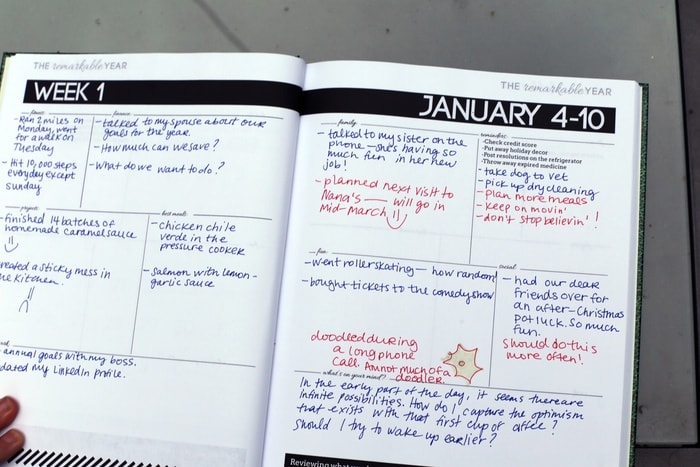 THE remarkable YEAR
WEEK 1
fitness
-Ran 2 miles on
Monday, went
for a walk on
Tuesday
- Hit 10,000 steps
everyday except
Sunday
finance
-talked to my spouse about our
goals for the year.
-How much can we save?
-What do we want to do?
projects
-finished 14 batches of
homemade caramel sauce
reated a sticky mess in
he kitchen.
best meals
- chicken chile
verde in the
pressure cooker
-salmon with lemon-
garlic sauce
annual goals with my boss.
dated my LinkedIn profile.
THE remarkable YEAR
JANUARY 4-10
family
- talked to my sister on the
phone - she's having so
much fun in her new
job!
- planned next visit to
Nana's — will go in
Mid-march
reminders
-Check credit score
-Put away holiday decor
-Post resolutions on the refrigerator
-Throw away expired medicine
-take dog to vet
-pick up dry cleaning
-plan more meals
-keep on movin'!
-don't stop believin'!
fun
-went rollerskating - how random!
-bought tickets to the comedy show
doodled during
a long phone
call. Am not much of a
doodler.
social
- had our dear
friends over for
an after-Christmas
potluck. So much
fun.
should do this
more often!
what's on your mind?
In the early part of the day, it seems there are
infinite possibilities. How do I capture the optimism
that exists with that first cup of coffee?
Should I try to wake up earlier?
Reviewing what